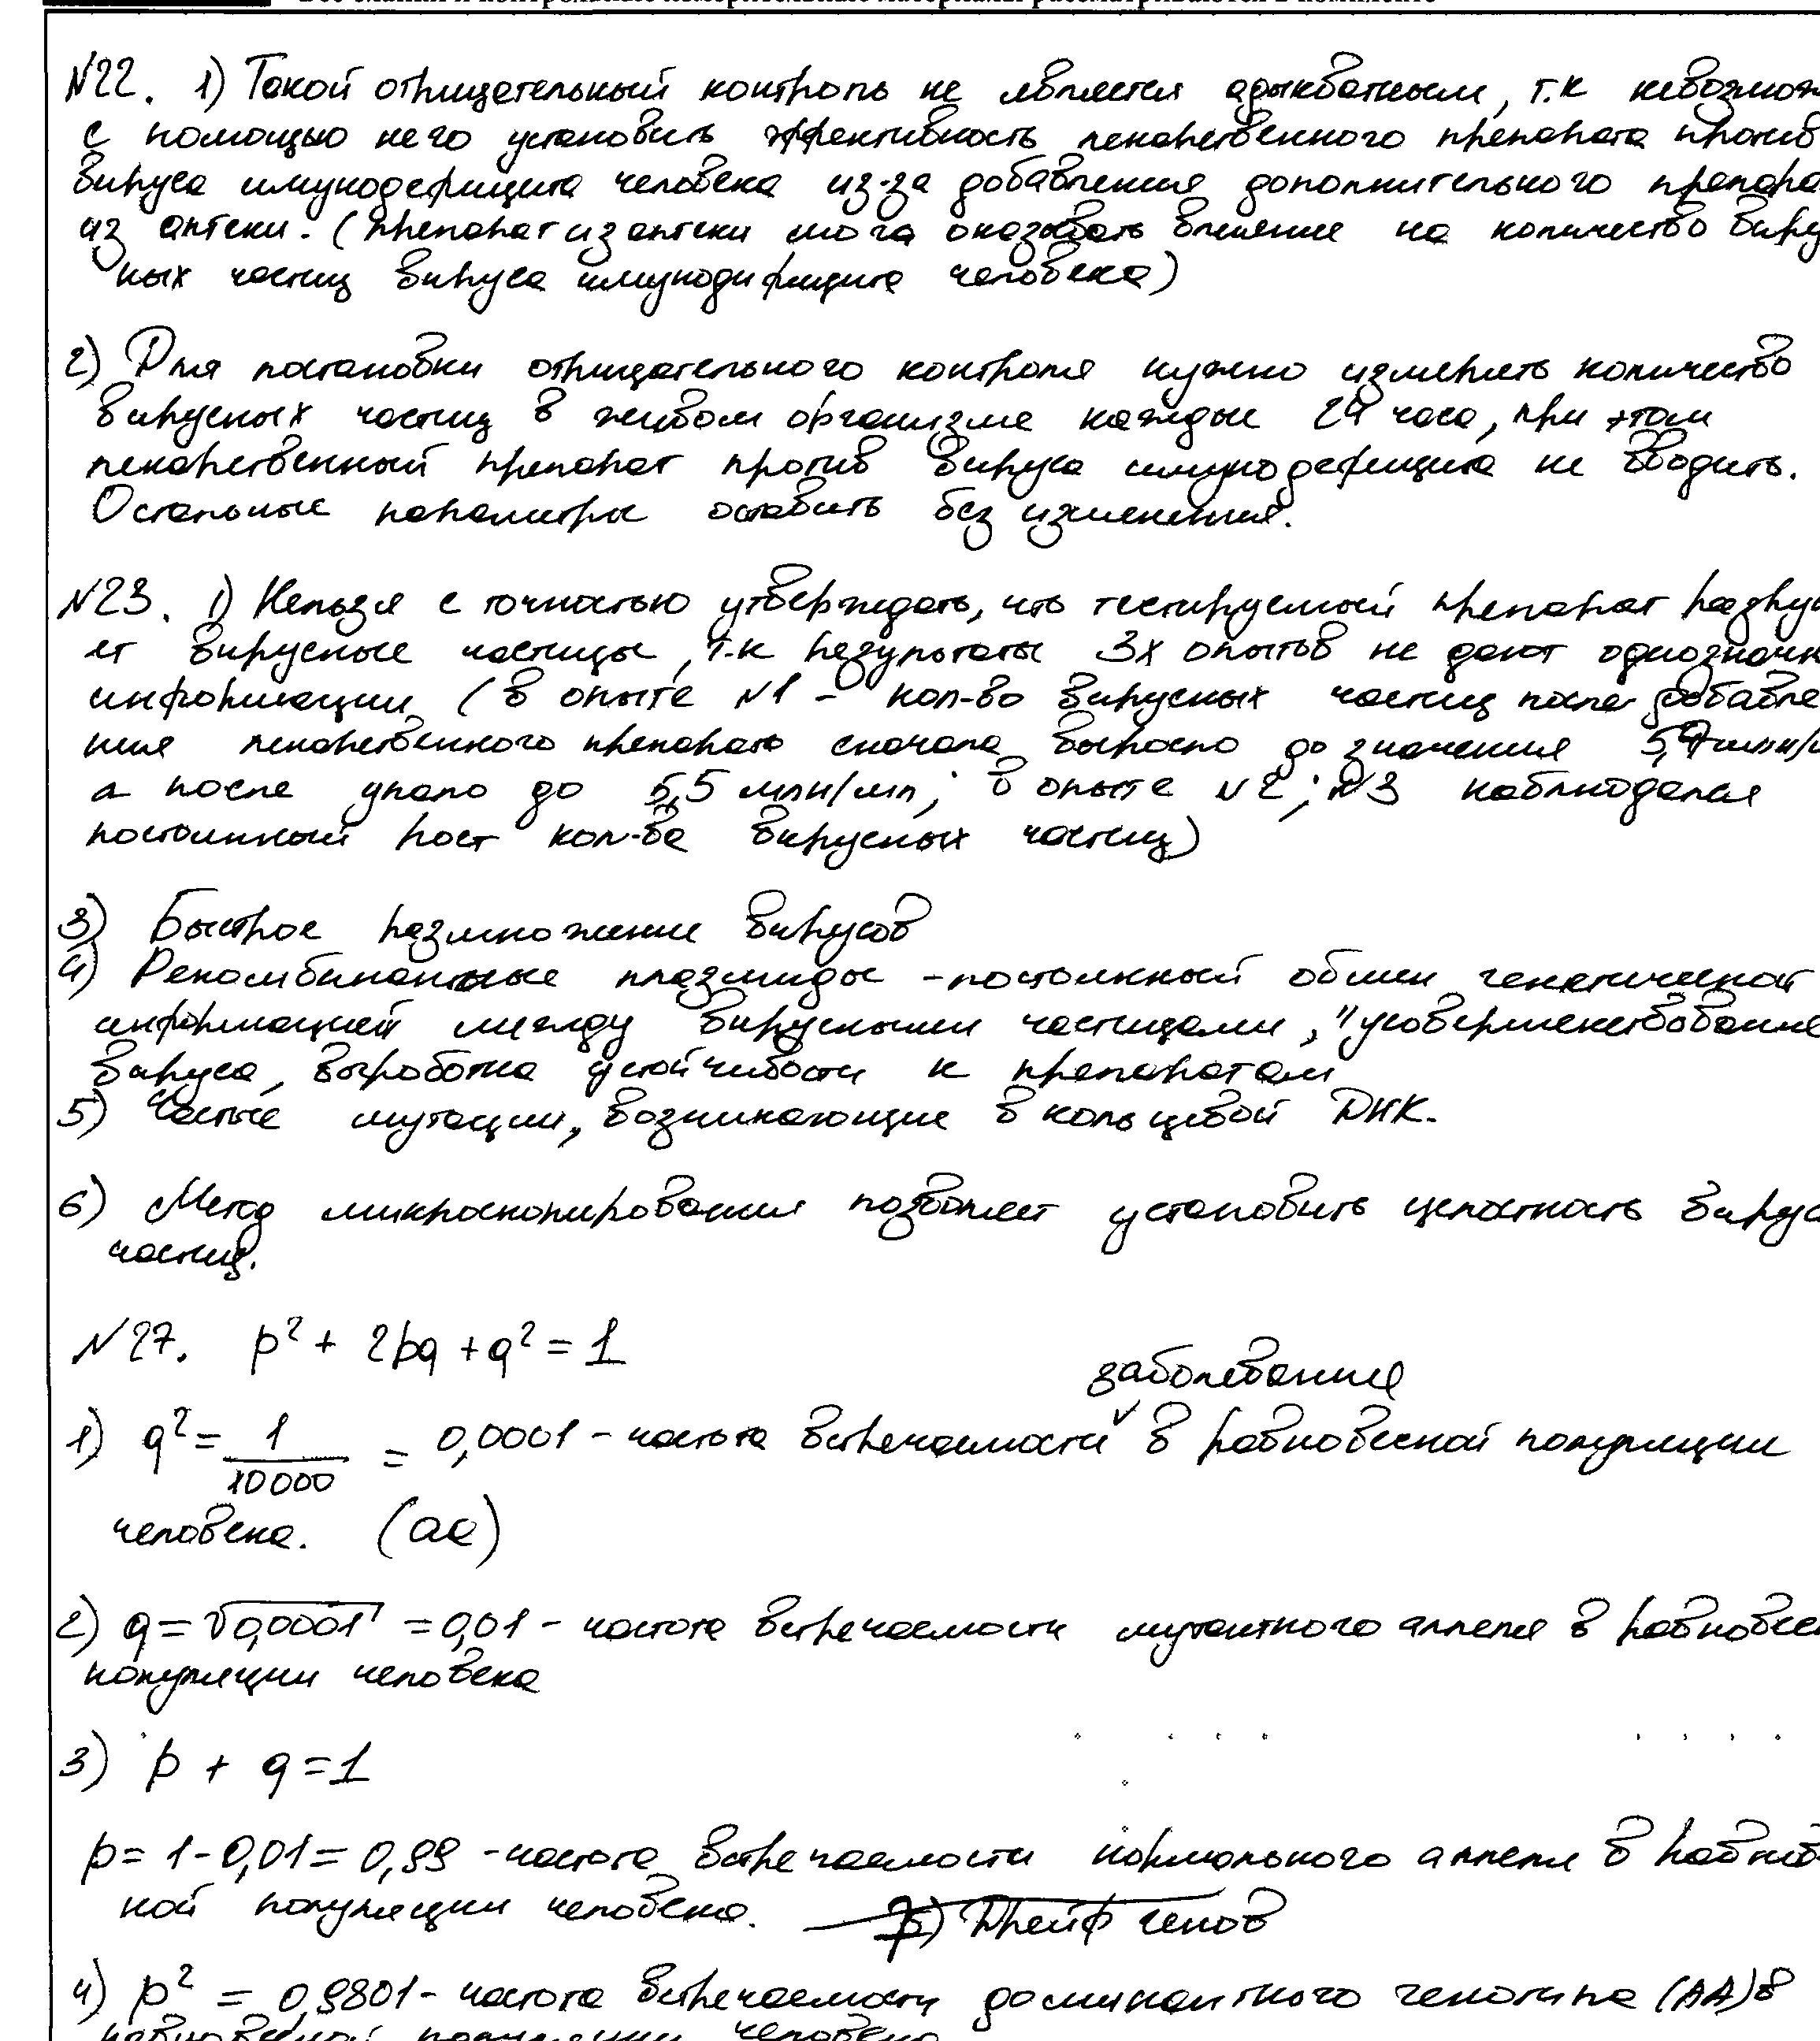 Все бланки и контрольные измерительные материалы рассматриваются в комплекте
№22. 1) Такой отрицательный контроль не является адыкватным, т.к невозмож
с помощью него установить эффективность лекарственного препарата против
вируса имунодефицита человека из-за добавления дополнительного препара
из аптеки. (препарат из аптеки мога оказывать влияние на количество виру
ных частиц вируса имунодифицита человека)
2) Для постановки отрицательного контроля нужно измерять количество
вирусных частиц в живом организме каждые 24 часа, при этом
лекарственный препарат против вируса имунодефицита не вводить.
Остальные параметры оставить без изменения.
№23. 1) Нельзя с точностью утверждать, что тестируемый препарат разру
ет вирусные частицы, т.к результаты 3х опытов не дают однозначн
информации (в опыте №1 - кол-во вирусных частиц после добавле
ния лекарственного препарата сначала выросло до значения
а после упало до 5,5 млн/мл; в опыте №2; №3 наблюдался
постоянный рост кол-ва вирусных частиц)
3) Быстрое размножение вирусов
4) Рекомбинантные плазмиды - постоянный обмен генетической
информацией между вирусными частицами, "усовершенствование
вируса, выработка устойчивости к препаратам
5) Частые мутации, возникающие в кольцевой ДНК.
6) Метод микроскопирования позволяет установить целостность вирус
частиц.
№27. p² + 2pq + q² = 1
заболевания
1) q² = 1/10000 = 0,0001 - частота встречаемости в равновесной популяции
человека. (aa)
2) q = √0,0001 = 0,01 - частота встречаемости мутантного аллеля в равновес
популяции человека
3) p + q = 1
p = 1 - 0,01 = 0,99 - частота встречаемости нормального аллеля в равнов
ной популяции человека. 7) Дрейф генов
4) p² = 0,9801 - частота встречаемости доминантного генотипа (AA) в
равновесной популяции человека